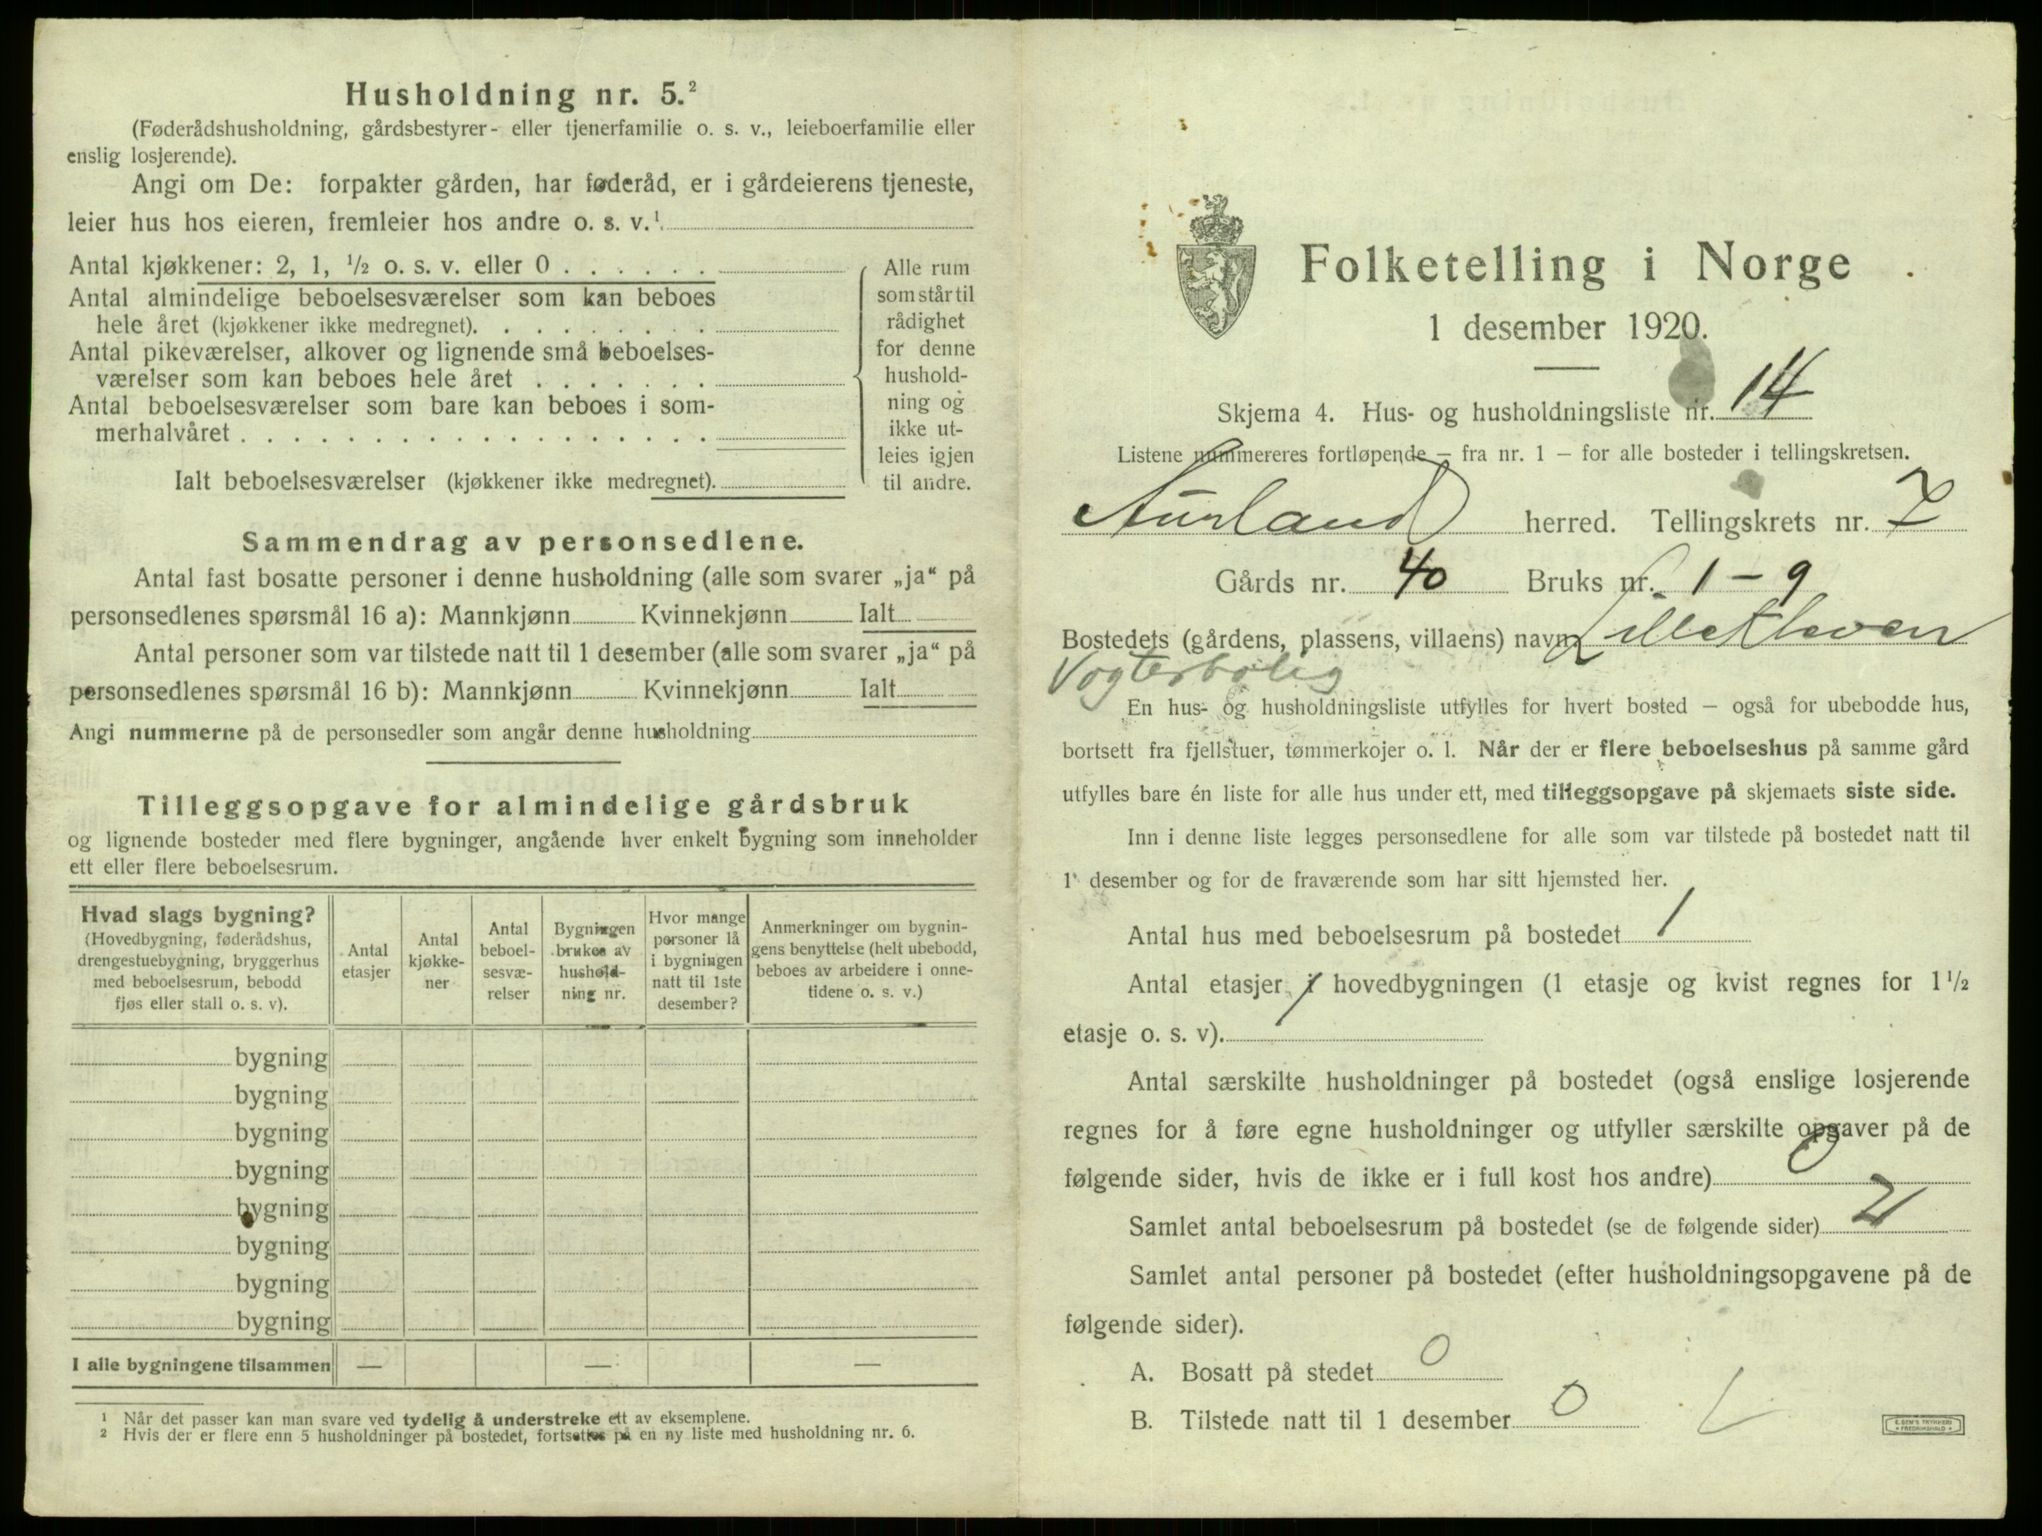 Husholdning nr. 5.²
(Føderådshusholdning, gårdsbestyrer- eller tjenerfamilie o. s. v., leieboerfamilie eller
enslig losjerende).
Angi om De: forpakter gården, har føderåd, er i gårdeierens tjeneste,
leier hus hos eieren, fremleier hos andre o. s. v.¹
Antal kjøkkener: 2, 1, ½ o. s. v. eller 0 . . . . . .
Antal almindelige beboelsesværelser som kan beboes
hele året (kjøkkener ikke medregnet). . . . . . . . .
Antal pikeværelser, alkover og lignende små beboelses-
værelser som kan beboes hele året . . . . . . .
Antal beboelsesværelser som bare kan beboes i som-
merhalvåret . . . . . . . . . . . . . . . . . .
Ialt beboelsesværelser (kjøkkener ikke medregnet).
Alle rum
som står til
rådighet
for denne
hushold-
ning og
ikke ut-
leies igjen
til andre.
Sammendrag av personsedlene.
Antal fast bosatte personer i denne husholdning (alle som svarer „ja“ på
personsedlenes spørsmål 16 a): Mannkjønn Kvinnekjønn Ialt
Antal personer som var tilstede natt til 1 desember (alle som svarer „ja“ på
personsedlenes spørsmål 16 b): Mannkjønn Kvinnekjønn Ialt
Angi nummerne på de personsedler som angår denne husholdning
Tilleggsopgave for almindelige gårdsbruk
og lignende bosteder med flere bygninger, angående hver enkelt bygning som inneholder
ett eller flere beboelsesrum.
Hvad slags bygning?
(Hovedbygning, føderådshus,
drengestuebygning, bryggerhus
med beboelsesrum, bebodd
fjøs eller stall o. s. v).
Antal
etasjer
Antal
kjøkke-
ner
Antal
beboel-
sesvæ-
relser
Bygningen
brukes av
hushold-
ning nr.
Hvor mange
personer lå
i bygningen
natt til 1ste
desember?
Anmerkninger om bygnin-
gens benyttelse (helt ubebodd,
beboes av arbeidere i onne-
tidene o. s. v.)
bygning
bygning
bygning
bygning
bygning
bygning
bygning
bygning
I alle bygningene tilsammen — — —
¹ Når det passer kan man svare ved tydelig å understreke ett av eksemplene.
² Hvis der er flere enn 5 husholdninger på bostedet, fortsettes på en ny liste med husholdning nr. 6.
Folketelling i Norge
1 desember 1920.
Skjema 4. Hus- og husholdningsliste nr. 14
Listene nummereres fortløpende – fra nr. 1 – for alle bosteder i tellingskretsen.
Aurland herred. Tellingskrets nr. 7
Gårds nr. 40 Bruks nr. 1 – 9
Bostedets (gårdens, plassens, villaens) navn
Vogterbolig
En hus- og husholdningsliste utfylles for hvert bosted – også for ubebodde hus,
bortsett fra fjellstuer, tømmerkojer o. l. Når der er flere beboelseshus på samme gård
utfylles bare én liste for alle hus under ett, med tilleggsopgave på skjemaets siste side.
Inn i denne liste legges personsedlene for alle som var tilstede på bostedet natt til
1 desember og for de fraværende som har sitt hjemsted her.
Antal hus med beboelsesrum på bostedet 1
Antal etasjer i hovedbygningen (1 etasje og kvist regnes for 1½
etasje o. s. v). 1
Antal særskilte husholdninger på bostedet (også enslige losjerende
regnes for å føre egne husholdninger og utfyller særskilte opgaver på de
følgende sider, hvis de ikke er i full kost hos andre) 0
Samlet antal beboelsesrum på bostedet (se de følgende sider) 2
Samlet antal personer på bostedet (efter husholdningsopgavene på de
følgende sider).
A. Bosatt på stedet 0
B. Tilstede natt til 1 desember 0
E. SEM'S TRYKKERI
FREDRIKSHALD